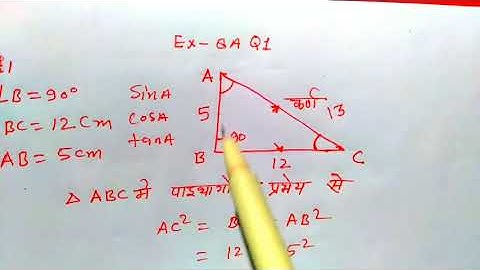 Ex- 8A Q1
∠B = 90°
BC = 12 cm
AB = 5 cm
sinA
cosA
tanA
A
5
90
B
12
C
कर्ण
13
C
Δ ABC में प्रमेय से
AC² = AB²
= 12 5²